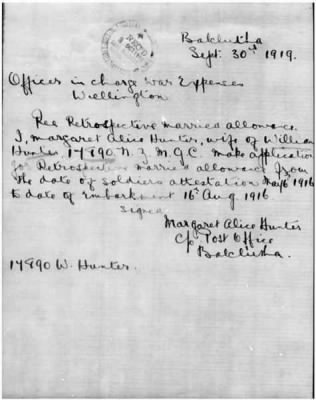 Balclutha
Sept. 30th 1919.
RECD
Officer in charge War Expenses
Wellington.
Ree Retrospective married allowance
I, Margaret Alice Hunter, wife of William
Hunter 17890 N.Z. M.G.C. make application
for Retrospective married allowance from
the date of soldiers attestation May 6 1916
to date of Embarkment 16th Aug 1916
signed
Margaret Alice Hunter
c/o Post Office
Balclutha.
17890 W. Hunter.